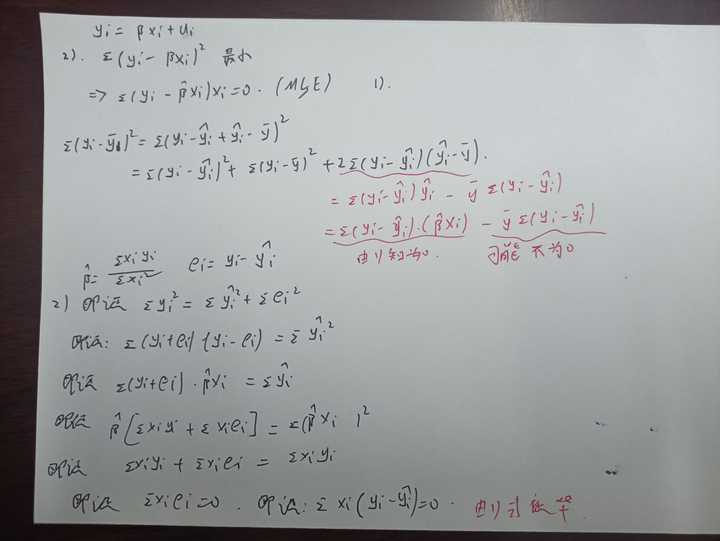 yᵢ = βxᵢ + uᵢ
2). Σ(yᵢ - βxᵢ)² 最小
=> Σ(yᵢ - β̂xᵢ)xᵢ = 0. (MSE) 1).
Σ(yᵢ - ȳ)² = Σ(yᵢ - ŷᵢ + ŷᵢ - ȳ)²
= Σ(yᵢ - ŷᵢ)² + Σ(ŷᵢ - ȳ)² + 2Σ(yᵢ - ŷᵢ)(ŷᵢ - ȳ).
= Σ(yᵢ - ŷᵢ)ŷᵢ - ȳ Σ(yᵢ - ŷᵢ)
= Σ(yᵢ - ŷᵢ).(β̂xᵢ) - ȳ Σ(yᵢ - ŷᵢ)
由1)知为0. 可能不为0
β̂ = Σxᵢyᵢ / Σxᵢ² eᵢ = yᵢ - ŷᵢ
2) 即证 Σyᵢ² = Σŷᵢ² + Σeᵢ²
即证: Σ(yᵢ+eᵢ)(yᵢ-eᵢ) = Σŷᵢ²
即证 Σ(yᵢ+eᵢ).β̂xᵢ = Σŷᵢ
即证 β̂[Σxᵢyᵢ + Σxᵢeᵢ] = Σ(β̂xᵢ )²
即证 Σxᵢyᵢ + Σxᵢeᵢ = Σxᵢyᵢ
即证 Σxᵢeᵢ = 0. 即证: Σxᵢ(yᵢ-ŷᵢ)=0. 由1)引